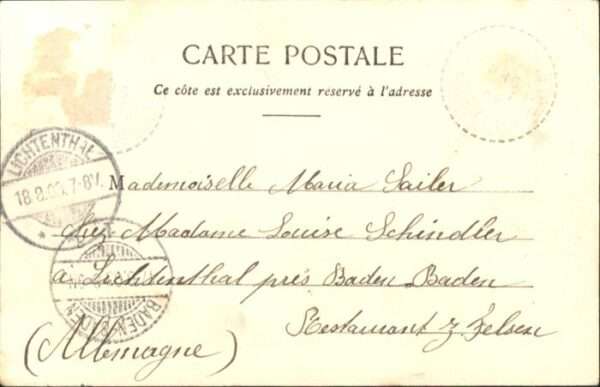 CARTE POSTALE
Ce côte est exclusivement reservé à l'adresse
LICHTENTHAL
18.8.0 .7-8V.
Mademoiselle Maria Sailer
chez Madame Louise Schindler
à Lichtenthal près Baden Baden
BADEN-BADEN
Restaurant z. Felsen
(Allemagne)